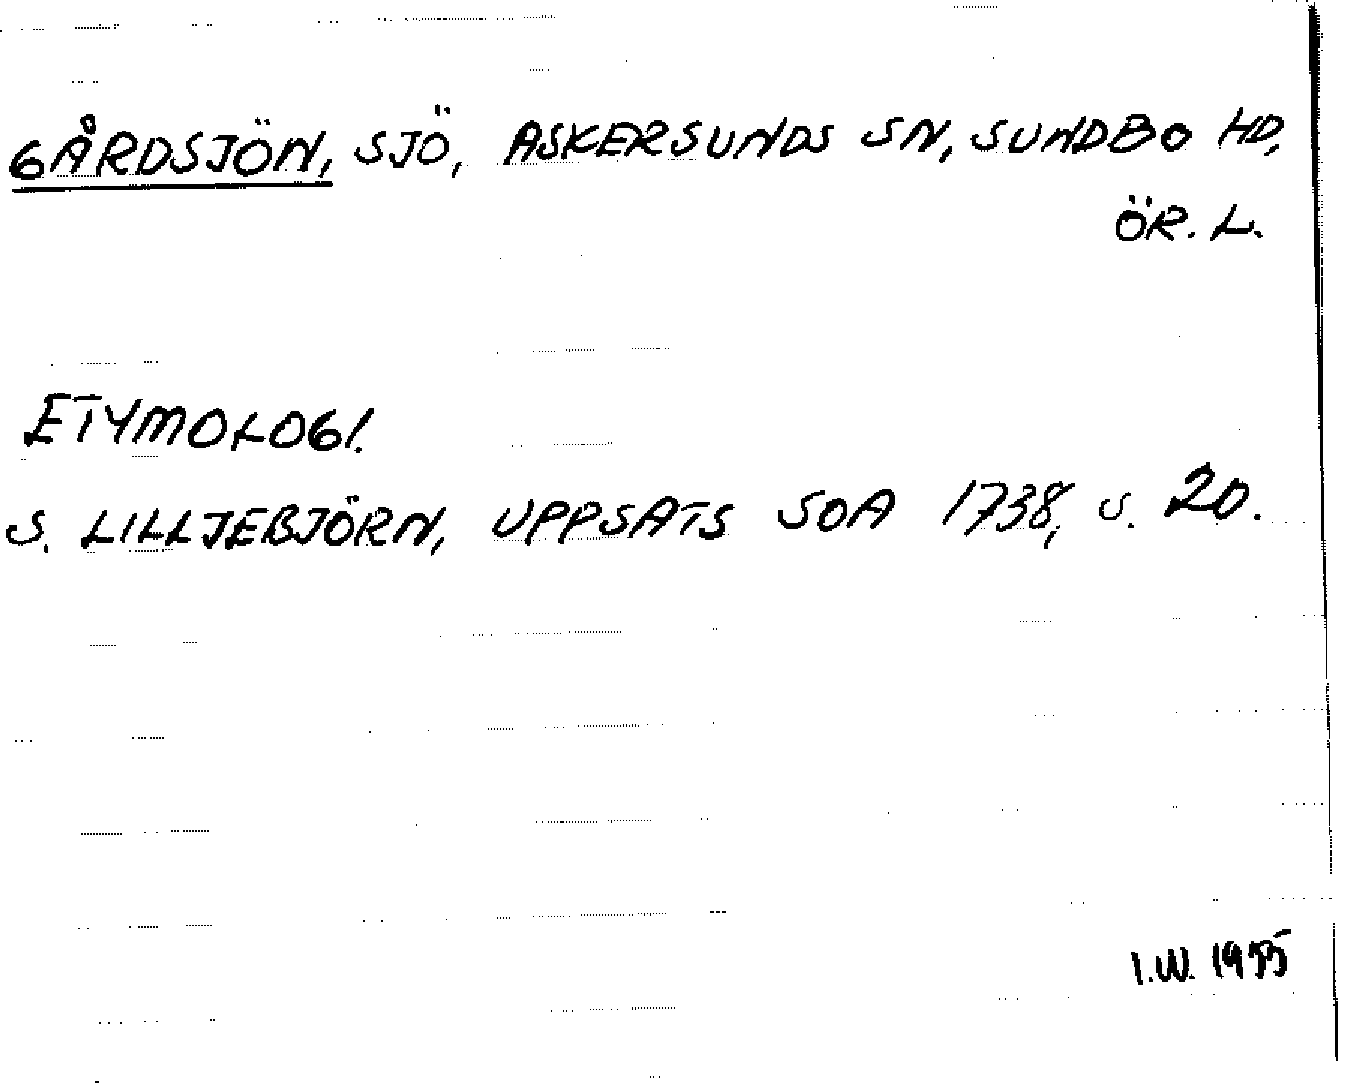 GÅRDSJÖN, SJÖ, ASKERSUNDS SN, SUNDBO HD,
ÖR. L.
ETYMOLOGI.
S. LILLJEBJÖRN, UPPSATS SOA 1738, S. 20.
I.W. 1955